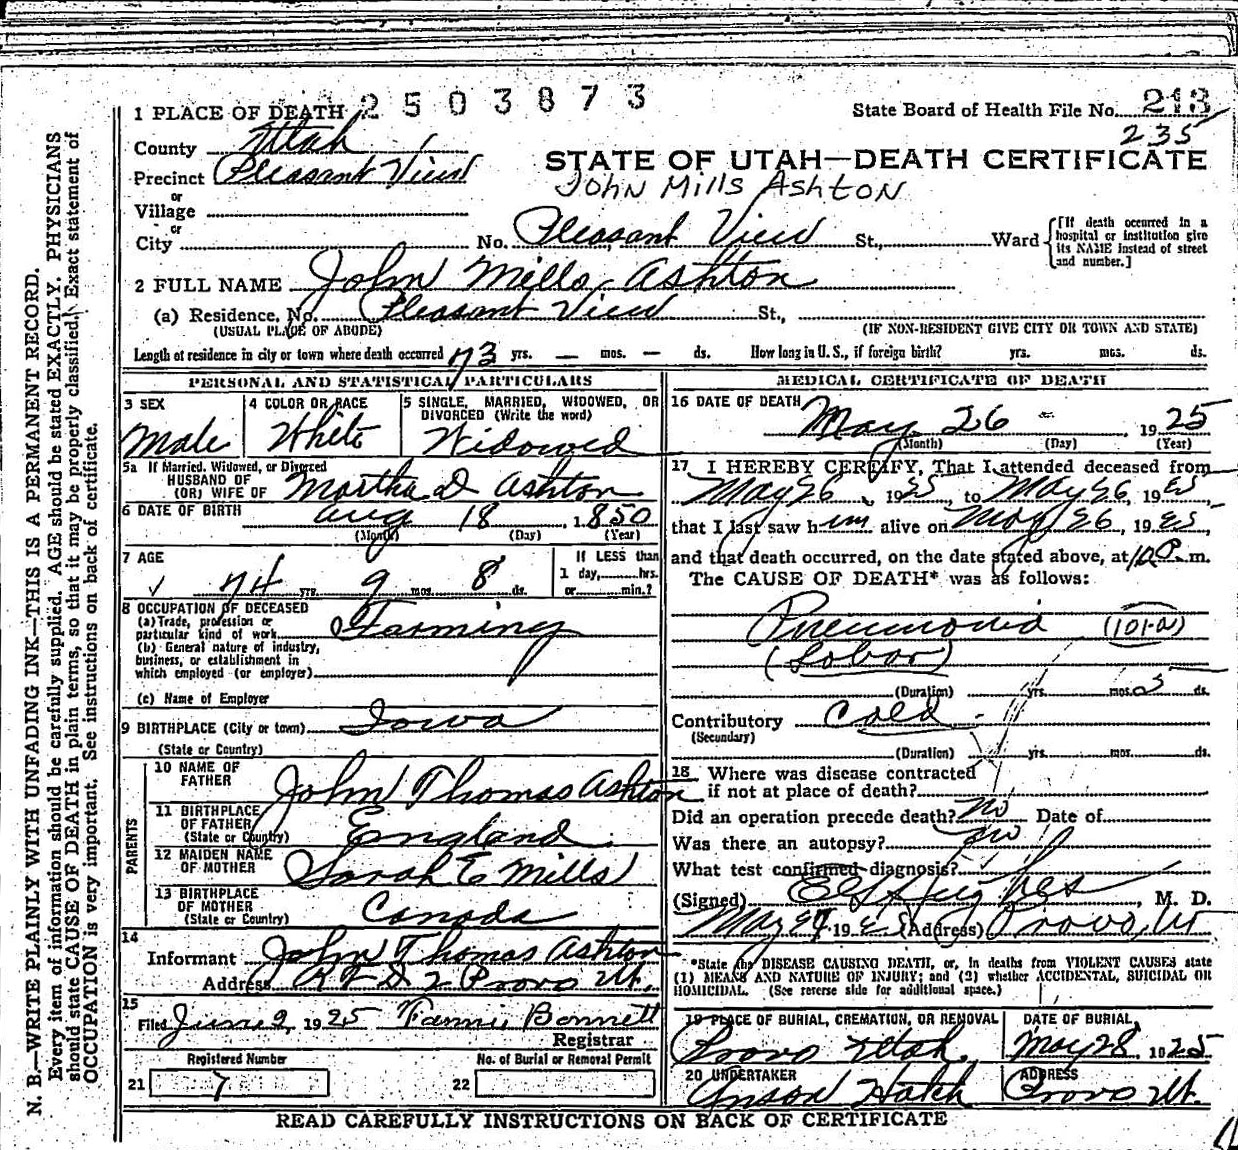 N. B.—WRITE PLAINLY WITH UNFADING INK—THIS IS A PERMANENT RECORD.
Every item of information should be carefully supplied. AGE should be stated EXACTLY. PHYSICIANS
should state CAUSE OF DEATH in plain terms, so that it may be properly classified. Exact statement of
OCCUPATION is very important. See instructions on back of certificate.
1 PLACE OF DEATH 2503873
State Board of Health File No. 213
235
County Utah
Precinct Pleasant View
STATE OF UTAH—DEATH CERTIFICATE
John Mills Ashton
or
Village
or
City No. Pleasant View St., Ward
[If death occurred in a
hospital or institution give
its NAME instead of street
and number.]
2 FULL NAME John Mills Ashton
(a) Residence. No. Pleasant View St.,
(USUAL PLACE OF ABODE) (IF NON-RESIDENT GIVE CITY OR TOWN AND STATE)
Length of residence in city or town where death occurred 73 yrs. — mos. — ds. How long in U. S., if foreign birth? yrs. mos. ds.
PERSONAL AND STATISTICAL PARTICULARS
3 SEX
Male
4 COLOR OR RACE
White
5 SINGLE, MARRIED, WIDOWED, OR
DIVORCED (Write the word)
Widowed
5a If Married, Widowed, or Divorced
HUSBAND OF
(OR) WIFE OF Martha D Ashton
6 DATE OF BIRTH Aug 18, 1850
(Month) (Day) (Year)
7 AGE
74 yrs. 9 mos. 8 ds.
If LESS than
1 day, hrs.
or min.?
8 OCCUPATION OF DECEASED
(a) Trade, profession or
particular kind of work Farming
(b) General nature of industry,
business, or establishment in
which employed (or employer)
(c) Name of Employer
9 BIRTHPLACE (City or town) Iowa
(State or Country)
PARENTS
10 NAME OF
FATHER John Thomas Ashton
11 BIRTHPLACE
OF FATHER
(State or Country) England
12 MAIDEN NAME
OF MOTHER Sarah E Mills
13 BIRTHPLACE
OF MOTHER
(State or Country) Canada
14
Informant John Thomas Ashton
Address R F D 2 Provo Ut.
15
Filed June 2, 1925 Fannie Bennett
Registrar
Registered Number
21 7
No. of Burial or Removal Permit
22
MEDICAL CERTIFICATE OF DEATH
16 DATE OF DEATH
May 26 1925
(Month) (Day) (Year)
17 I HEREBY CERTIFY, That I attended deceased from
May 26, 1925, to May 26, 1925,
that I last saw him alive on May 26, 1925,
and that death occurred, on the date stated above, at 10 P. m.
The CAUSE OF DEATH* was as follows:
Pneumonia (101-a)
(Lobar)
(Duration) yrs. mos. 5 ds.
Contributory Cold
(Secondary)
(Duration) yrs. mos. ds.
18 Where was disease contracted
if not at place of death?
Did an operation precede death? No Date of
Was there an autopsy? No
What test confirmed diagnosis?
(Signed) Hughes, M. D.
May 27, 1925 (Address) Provo, Ut
*State the DISEASE CAUSING DEATH, or, in deaths from VIOLENT CAUSES state
(1) MEANS AND NATURE OF INJURY; and (2) whether ACCIDENTAL, SUICIDAL OR
HOMICIDAL. (See reverse side for additional space.)
19 PLACE OF BURIAL, CREMATION, OR REMOVAL
Provo Utah
DATE OF BURIAL
May 28, 1925
20 UNDERTAKER
Anson Hatch
ADDRESS
Provo Ut.
READ CAREFULLY INSTRUCTIONS ON BACK OF CERTIFICATE